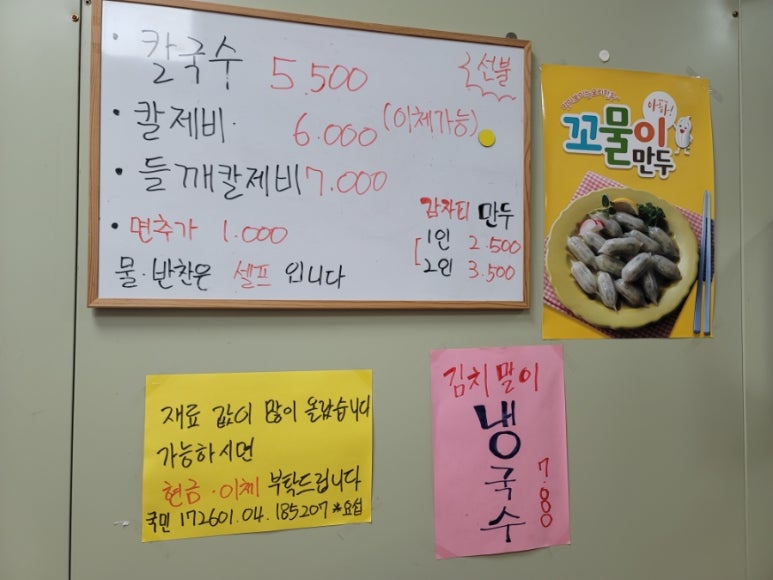 칼국수 5.500
선불
칼제비 6.000 (이체가능)
들깨칼제비 7.000
면추가 1.000
물·반찬은 셀프 입니다
감자티 만두
1인 2.500
2인 3.500
아하!
꼬물이
만두
재료 값이 많이 올랐습니다
가능하시면
현금·이체 부탁드립니다
국민 172601.04.185207 *요섭
김치말이
냉국수
7.80